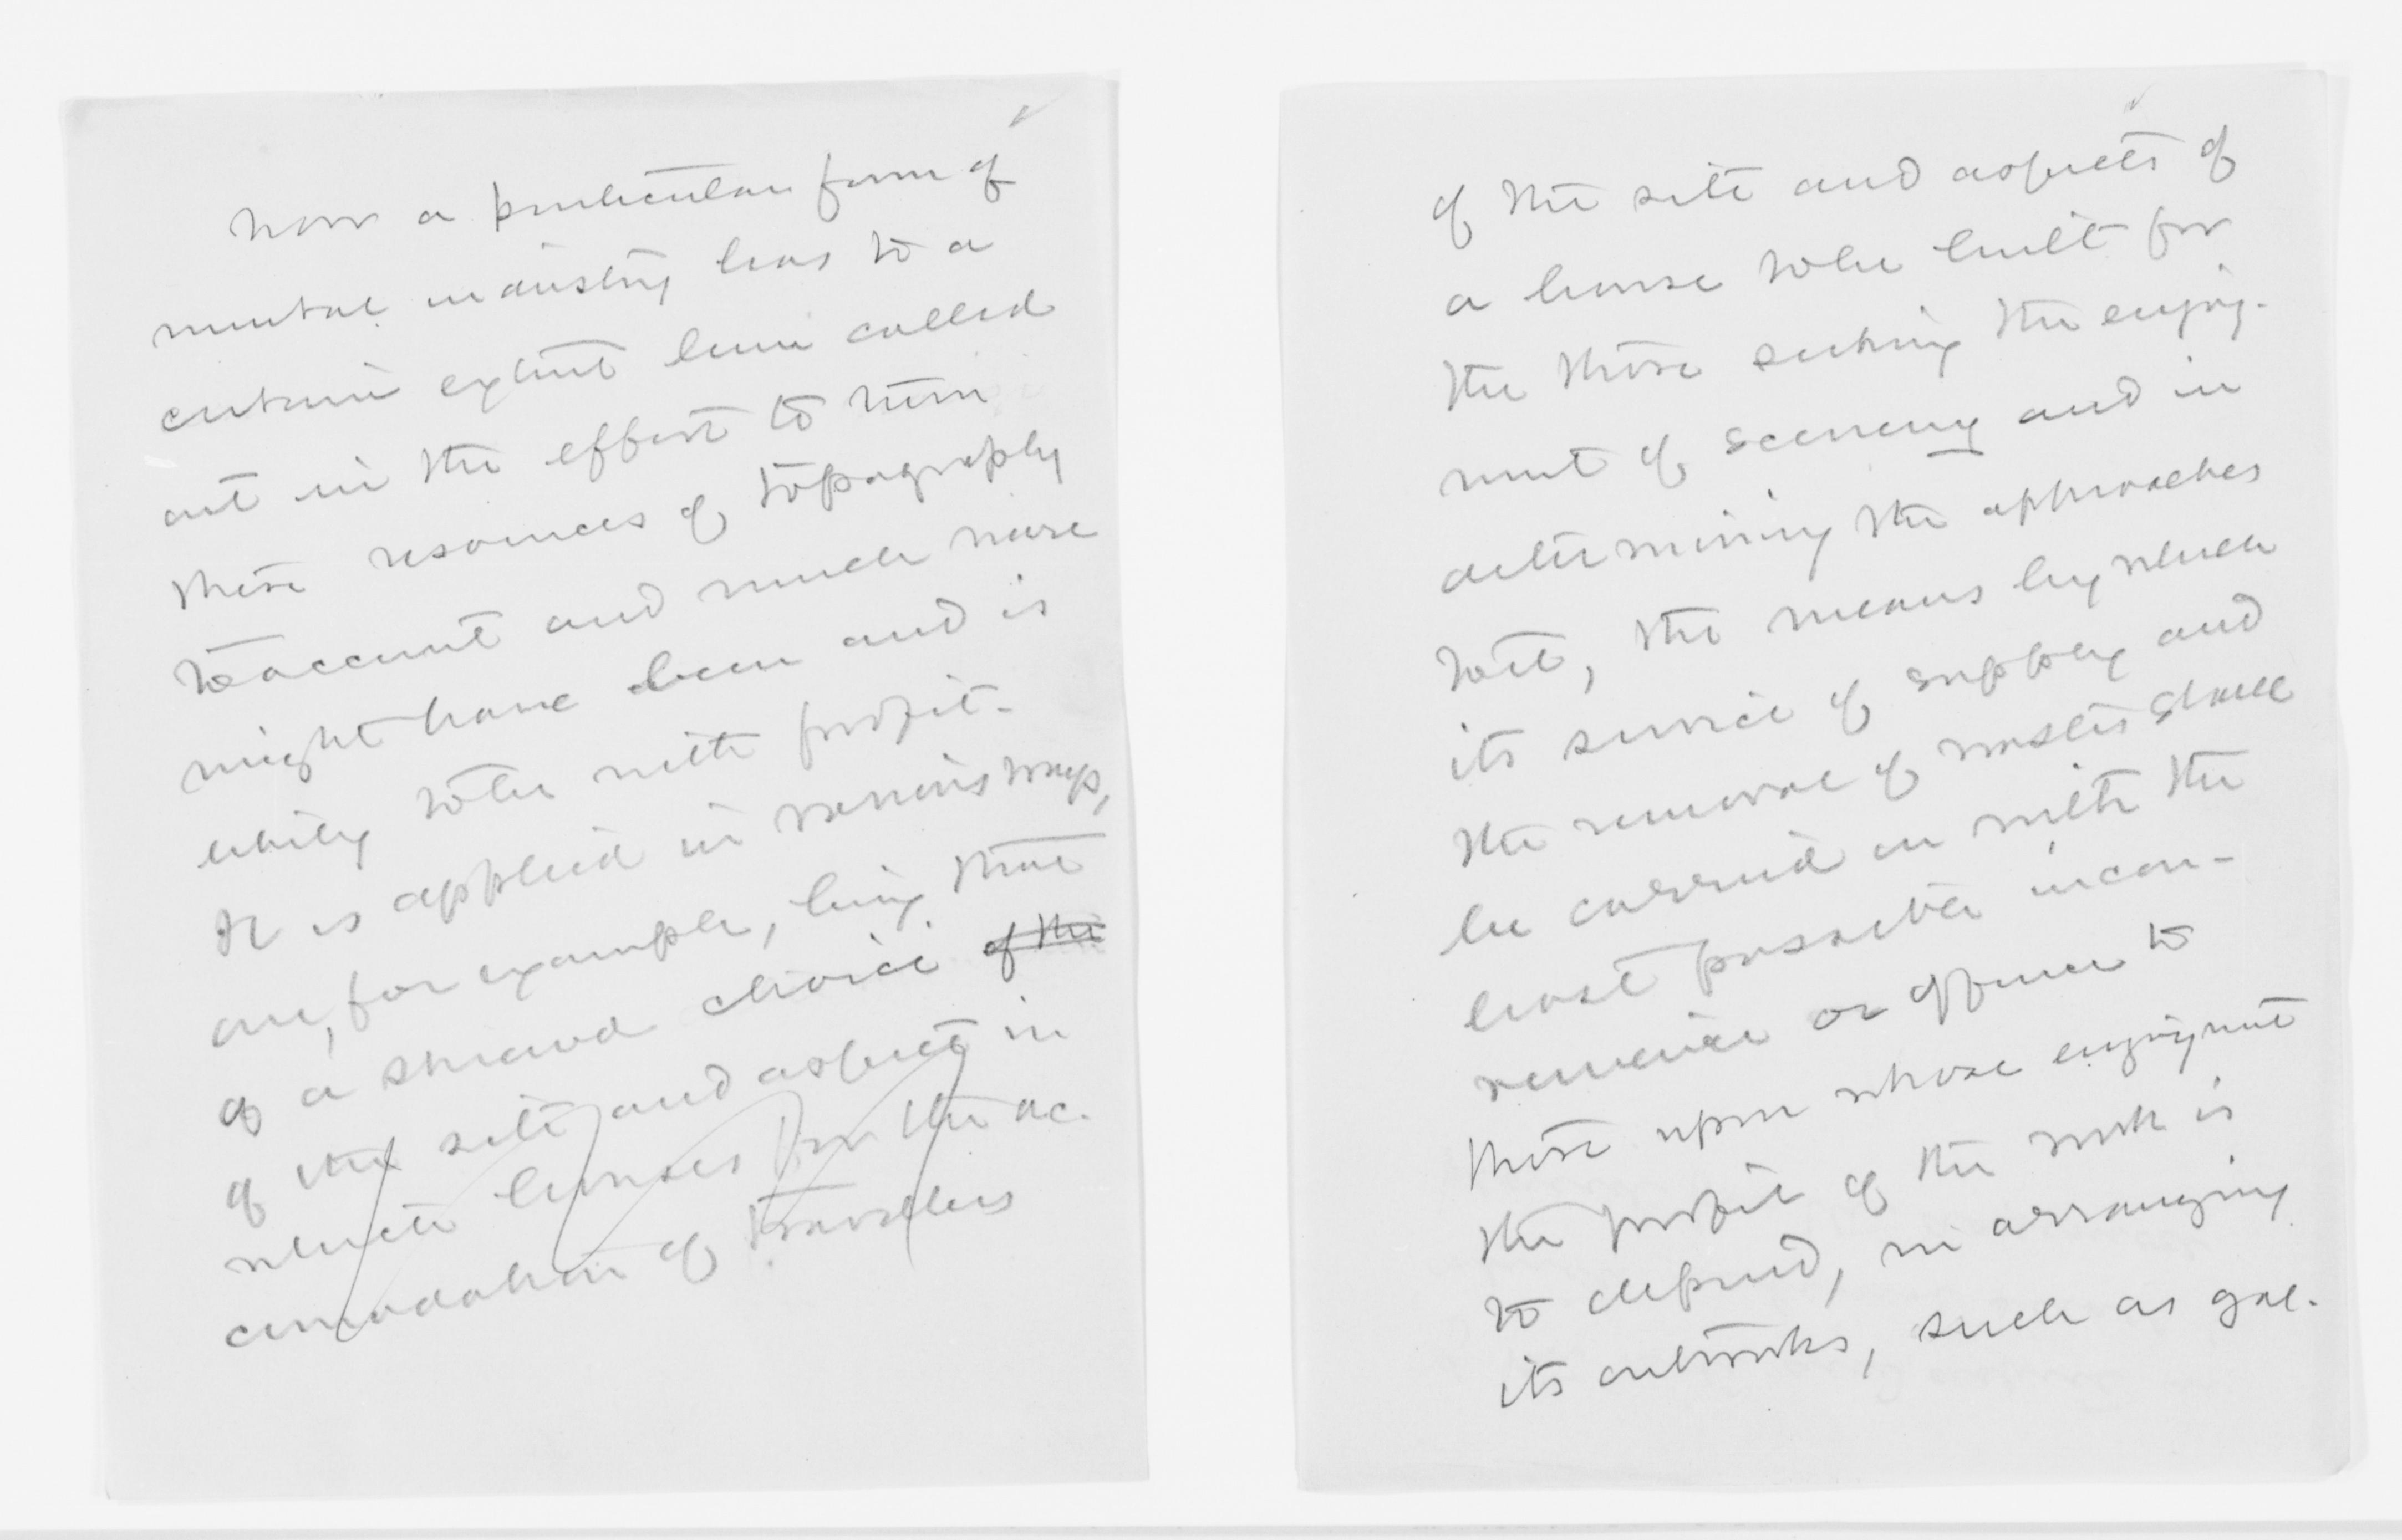 Now a particular form of
mental industry has to a
certain extent been called
out in the effort to turn
these resources of topography
to account and much more
might have been and is
likely to be with profit.
It is applied in various ways,
one, for example, being that
of a shrewd choice of the
of the site and aspects in
which houses for the ac-
comodation of travellers
of the site and aspects of
a house to be built for
the those seeking the enjoy-
ment of scenery and in
determining the approaches
to it, the means by which
its service of supply and
the removal of wastes shall
be carried on with the
least possible incon-
venience or offence to
those upon whose enjoyment
the profit of the work is
to depend, in arranging
its outworks, such as gal-